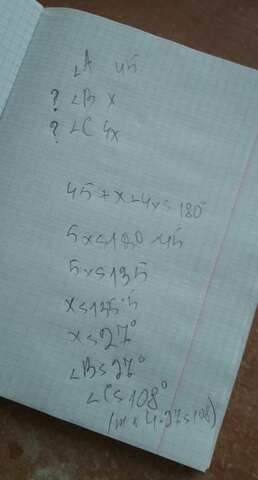 ∠A 45
? ∠B x
? ∠C 4x
45+x+4x=180°
5x=180-45
5x=135
x=135:5
x=27°
∠B=27°
∠C=108°
4·27=108)